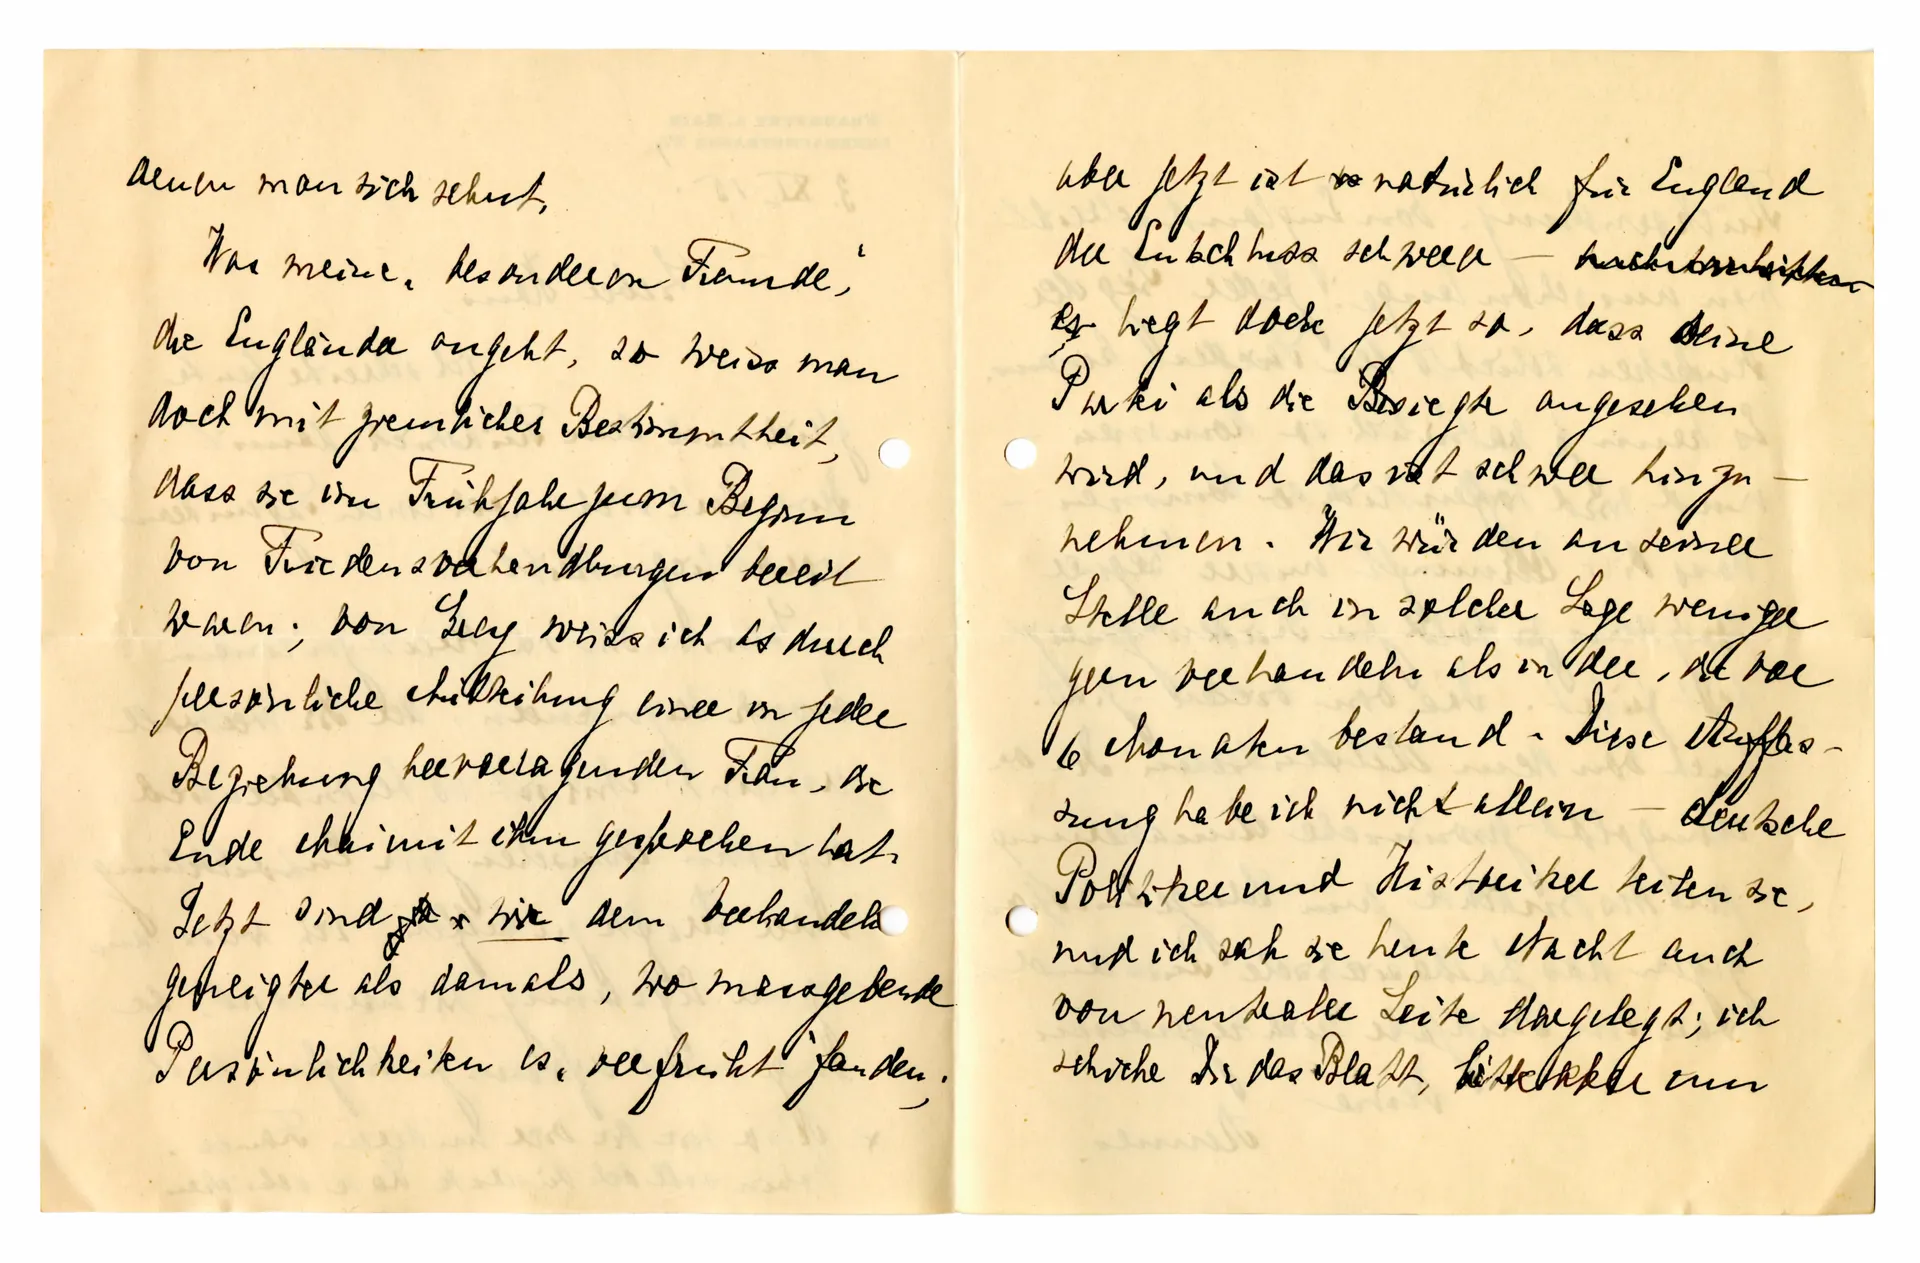 denen man sich sehnt.
Was meine „besonderen Freunde",
die Engländer angeht, so weiss man
doch mit ziemlicher Bestimmtheit,
dass sie im Frühjahr zum Beginn
von Friedensverhandlungen bereit
waren; von Grey weiss ich es durch
persönliche Mitteilung einer in jeder
Beziehung hervorragenden Frau, die
Ende Mai mit ihm gesprochen hat.
Jetzt sind x wir dem Verhandeln
geneigter als damals, wo massgebende
Persönlichkeiten es „verfrüht" fanden;
aber jetzt ist natürlich für England
der Entschluss schwerer —
es liegt doch jetzt so, dass seine
Partei als die Besiegte angesehen
wird, und das ist schwer hinzu-
nehmen. Wir würden an seiner
Stelle auch in solcher Lage weniger
gern verhandeln als in der, die vor
6 Monaten bestand. Diese Auffas-
sung habe ich nicht allein — deutsche
Politiker und Historiker teilen sie,
und ich sah sie heute Nacht auch
von neutraler Seite dargelegt; ich
schicke Dir das Blatt, bitte aber um